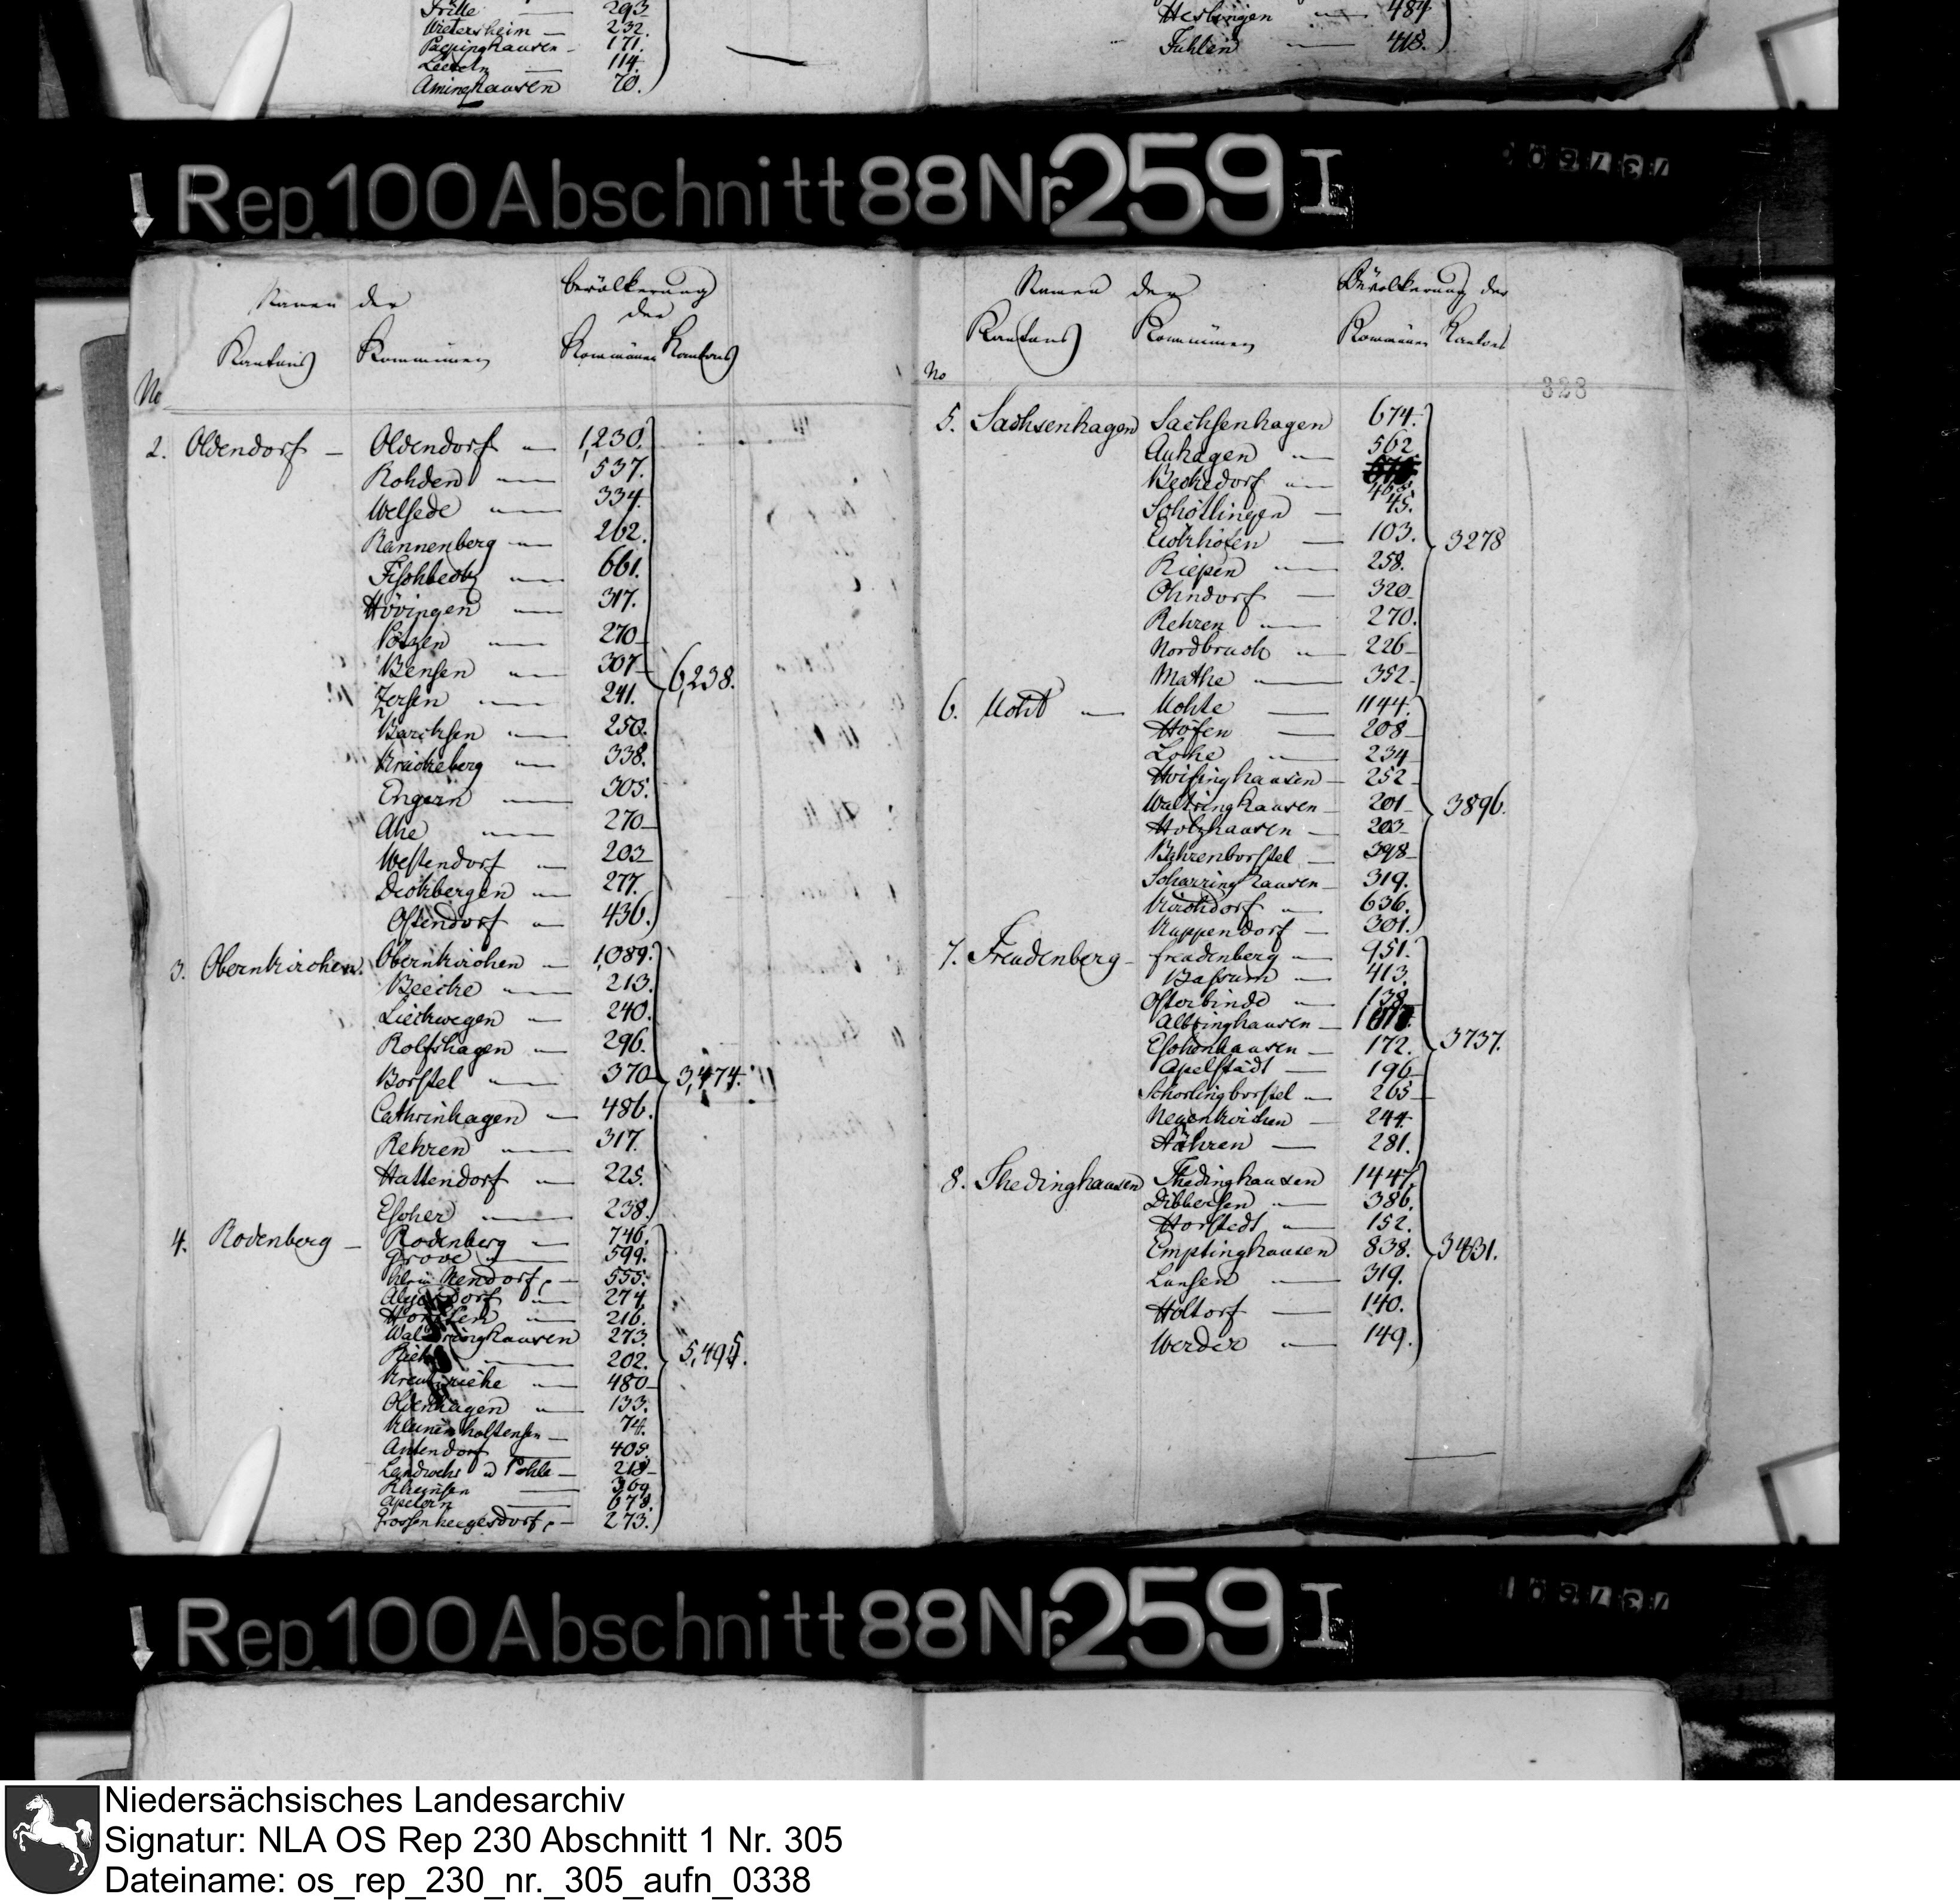 Frille — 293
Wietersheim — 232.
Päpinghausen - 171.
Leeteln — 114.
Aminghausen 70.
Heslingen — 487
Fuhlen — 418.
Rep. 100 Abschnitt 88 Nr. 259 I
Namen der
Bevölkerung der
Kantons Kommünen Kommünen Kantons
No
2. Oldendorf — Oldendorf — 1,230.
Rohden — 537.
Welsede — 334.
Rannenberg — 262.
Fischbeck — 661.
Hövingen — 317.
Pötzen — 270
Bensen — 307
6,238.
Zersen — 241.
Barcksen — 250.
Krückeberg — 338.
Engern — 305.
Ahe — 270
Westendorf — 203
Deckbergen — 277.
Ostendorf — 436.
3. Obernkirchen. Obernkirchen — 1,089.
Beecke — 213.
Lieckwegen — 240.
Rolfshagen — 296.
Borstel — 370 3,474.
Cathrinhagen — 486.
Rehren — 317.
Hattendorf — 225.
Escher — 238.
4. Rodenberg — Rodenberg — 746.
Grove — 599.
Klein Nendorf, — 555.
Algesdorf — 274.
Horsten — 216.
Waltringhausen 273.
Riehe — 202. 5,495.
Kreutzriehe — 480
Oldenhagen — 133.
Kleinenholstensen — 74.
Antendorf — 405.
Landwehr u Pohle — 218
369
Apelern — 678.
Grossenhegesdorf, — 273.
Namen der
Bevölkerung der
Kantons Kommünen Kommünen Kantons
No
328
5. Sachsenhagen Sachsenhagen 674.
Auhagen — 562
Beckedorf — 468.
Schöttlingen — 45.
Eickhöfen — 103. 3278
Riepen — 258.
Ohndorf — 320
Rehren — 270.
Nordbruch — 226
Mathe — 352
6. Uchte — Uchte — 1144.
Höfen — 208
Lohe — 234
Hoisinghausen — 252
Waltringhausen — 201 3896.
Holzhausen — 203
Bahrenborstel — 398
Scharringhausen — 319.
Kirchdorf — 636.
Kuppendorf — 301.
7. Freudenberg — Freudenberg — 951.
Bassum — 413.
Osterbinde — 138
Albringhausen — 
Eschenhausen — 172. 3737.
Apelstädt — 196
Schorlingborstel — 265
Neuenkirchen — 244
Hähren — 281.
8. Thedinghausen Thedinghausen 1447.
Dibbersen — 386.
Horstedt — 152.
Emptinghausen 838. 3431.
Lunsen — 319.
Holtorf — 140.
Werder — 149.
Rep. 100 Abschnitt 88 Nr. 259 I
Niedersächsisches Landesarchiv
Signatur: NLA OS Rep 230 Abschnitt 1 Nr. 305
Dateiname: os_rep_230_nr._305_aufn_0338